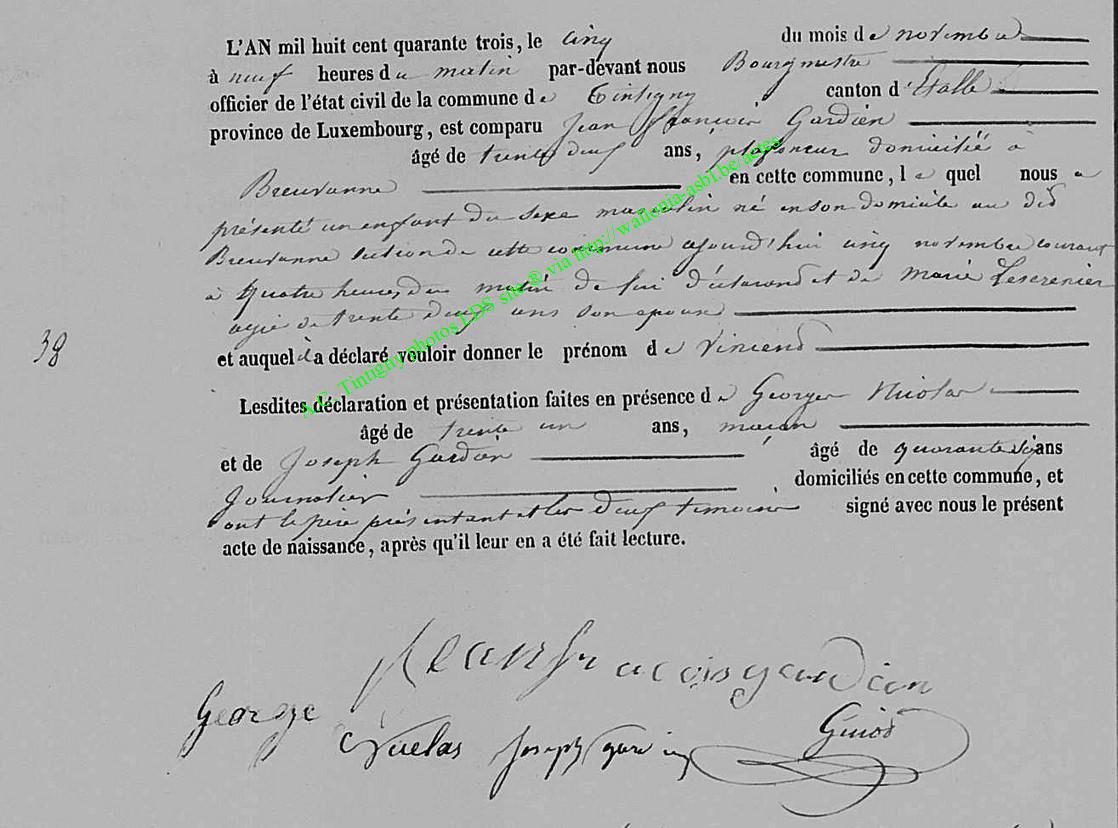 L'AN mil huit cent quarante trois, le cinq du mois de novembre
à neuf heures du matin par-devant nous Bourgmestre
officier de l'état civil de la commune de Tintigny canton d'Etalle
province de Luxembourg, est comparu Jean François Gardien
âgé de trente deux ans, plafoneur domicilié à
Breuvanne en cette commune, lequel nous a
présenté un enfant du sexe masculin né en son domicile au dit
Breuvanne section de cette commune ajourd'hui cinq novembre courant
à quatre heures du matin de lui déclarant et de Marie Lescrenier
agée de trente deux ans son epouse
38
et auquel il a déclaré vouloir donner le prénom de Vincend
Lesdites déclaration et présentation faites en présence de Georges Nicolas
âgé de trente un ans, maçon
et de Joseph Gardien âgé de quarante six ans
Journalier domiciliés en cette commune, et
ont le père présentant et les deux temoins signé avec nous le présent
acte de naissance, après qu'il leur en a été fait lecture.
A.E. Tintigny photos LDS site ® via http://wallonia-asbl.be/actes
Jean francois gardien
George
Joseph gardien
Guiot